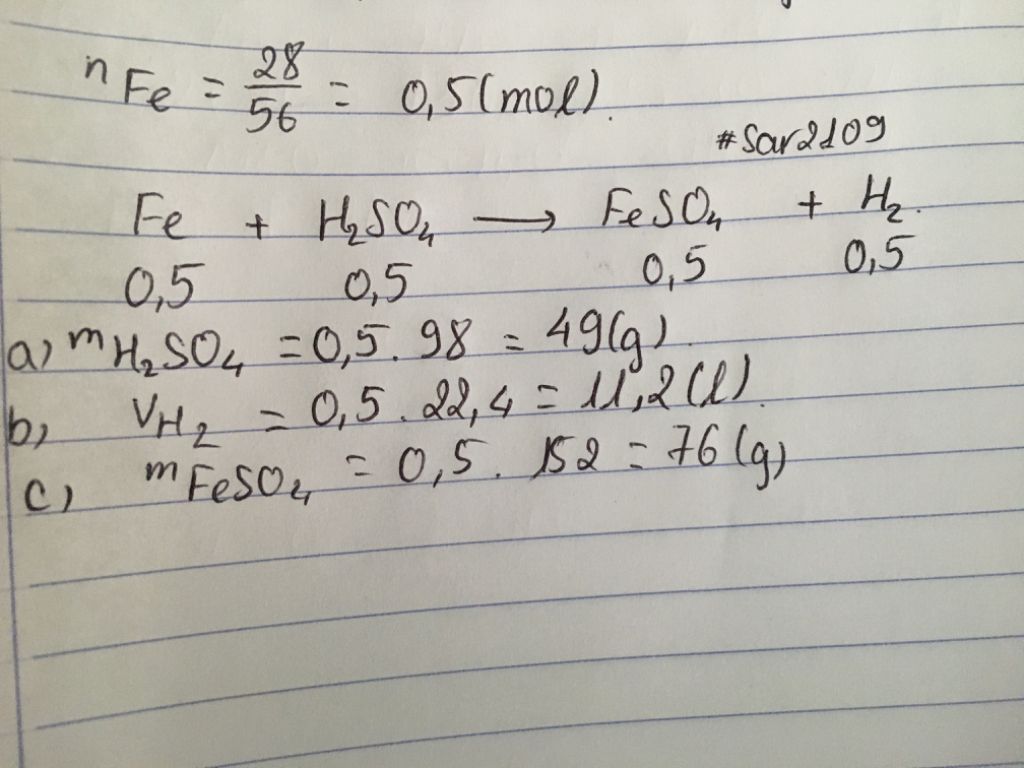 nFe = 28/56 = 0,5 (mol).
#Sar2109
Fe + H₂SO₄ → FeSO₄ + H₂.
0,5 0,5 0,5 0,5
a) mH₂SO₄ = 0,5 . 98 = 49(g).
b) VH₂ = 0,5 . 22,4 = 11,2 (l).
c) mFeSO₄ = 0,5 . 152 = 76 (g)